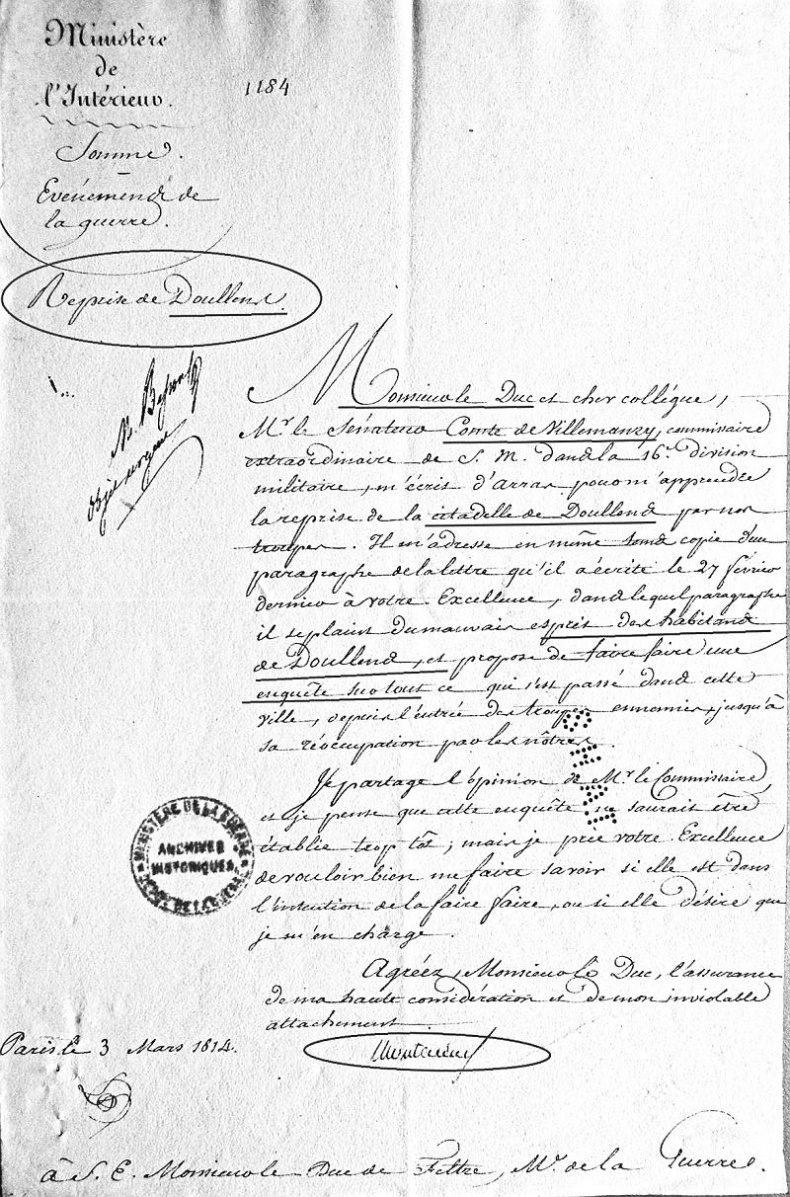 Ministère
de
l'Intérieur.
1184
Somme.
Evénemens de
la guerre.
Reprise de Doullens.
M.
Monsieur le Duc et cher collégue,
Mr. le Sénateur Comte de Villemanzy, commissaire
extraordinaire de S. M. dans la 16e. division
militaire, m'écrit d'Arras pour m'apprendre
la reprise de la citadelle de Doullens par nos
troupes. Il m'adresse en même tems copie d'un
paragraphe de la lettre qu'il a écrite le 27 février
dernier à votre Excellence, dans lequel paragraphe
il se plaint du mauvais esprit des habitans
de Doullens, et propose de faire faire une
enquête sur tout ce qui s'est passé dans cette
ville, depuis l'entrée des troupes ennemies, jusqu'à
sa réoccupation par les nôtres.
Je partage l'opinion de Mr. le Commissaire,
et je pense que cette enquête ne saurait être
établie trop tôt; mais je prie votre Excellence
de vouloir bien me faire savoir si elle est dans
l'intention de la faire faire, ou si elle désire que
je m'en charge.
MINISTÈRE DE LA GUERRE
ARCHIVES
HISTORIQUES
Agréez, Monsieur le Duc, l'assurance
de ma haute considération et de mon inviolable
attachement.
Paris, le 3 Mars 1814.
Montalivet
à S. E. Monsieur le Duc de Feltre, Mre. de la Guerre.